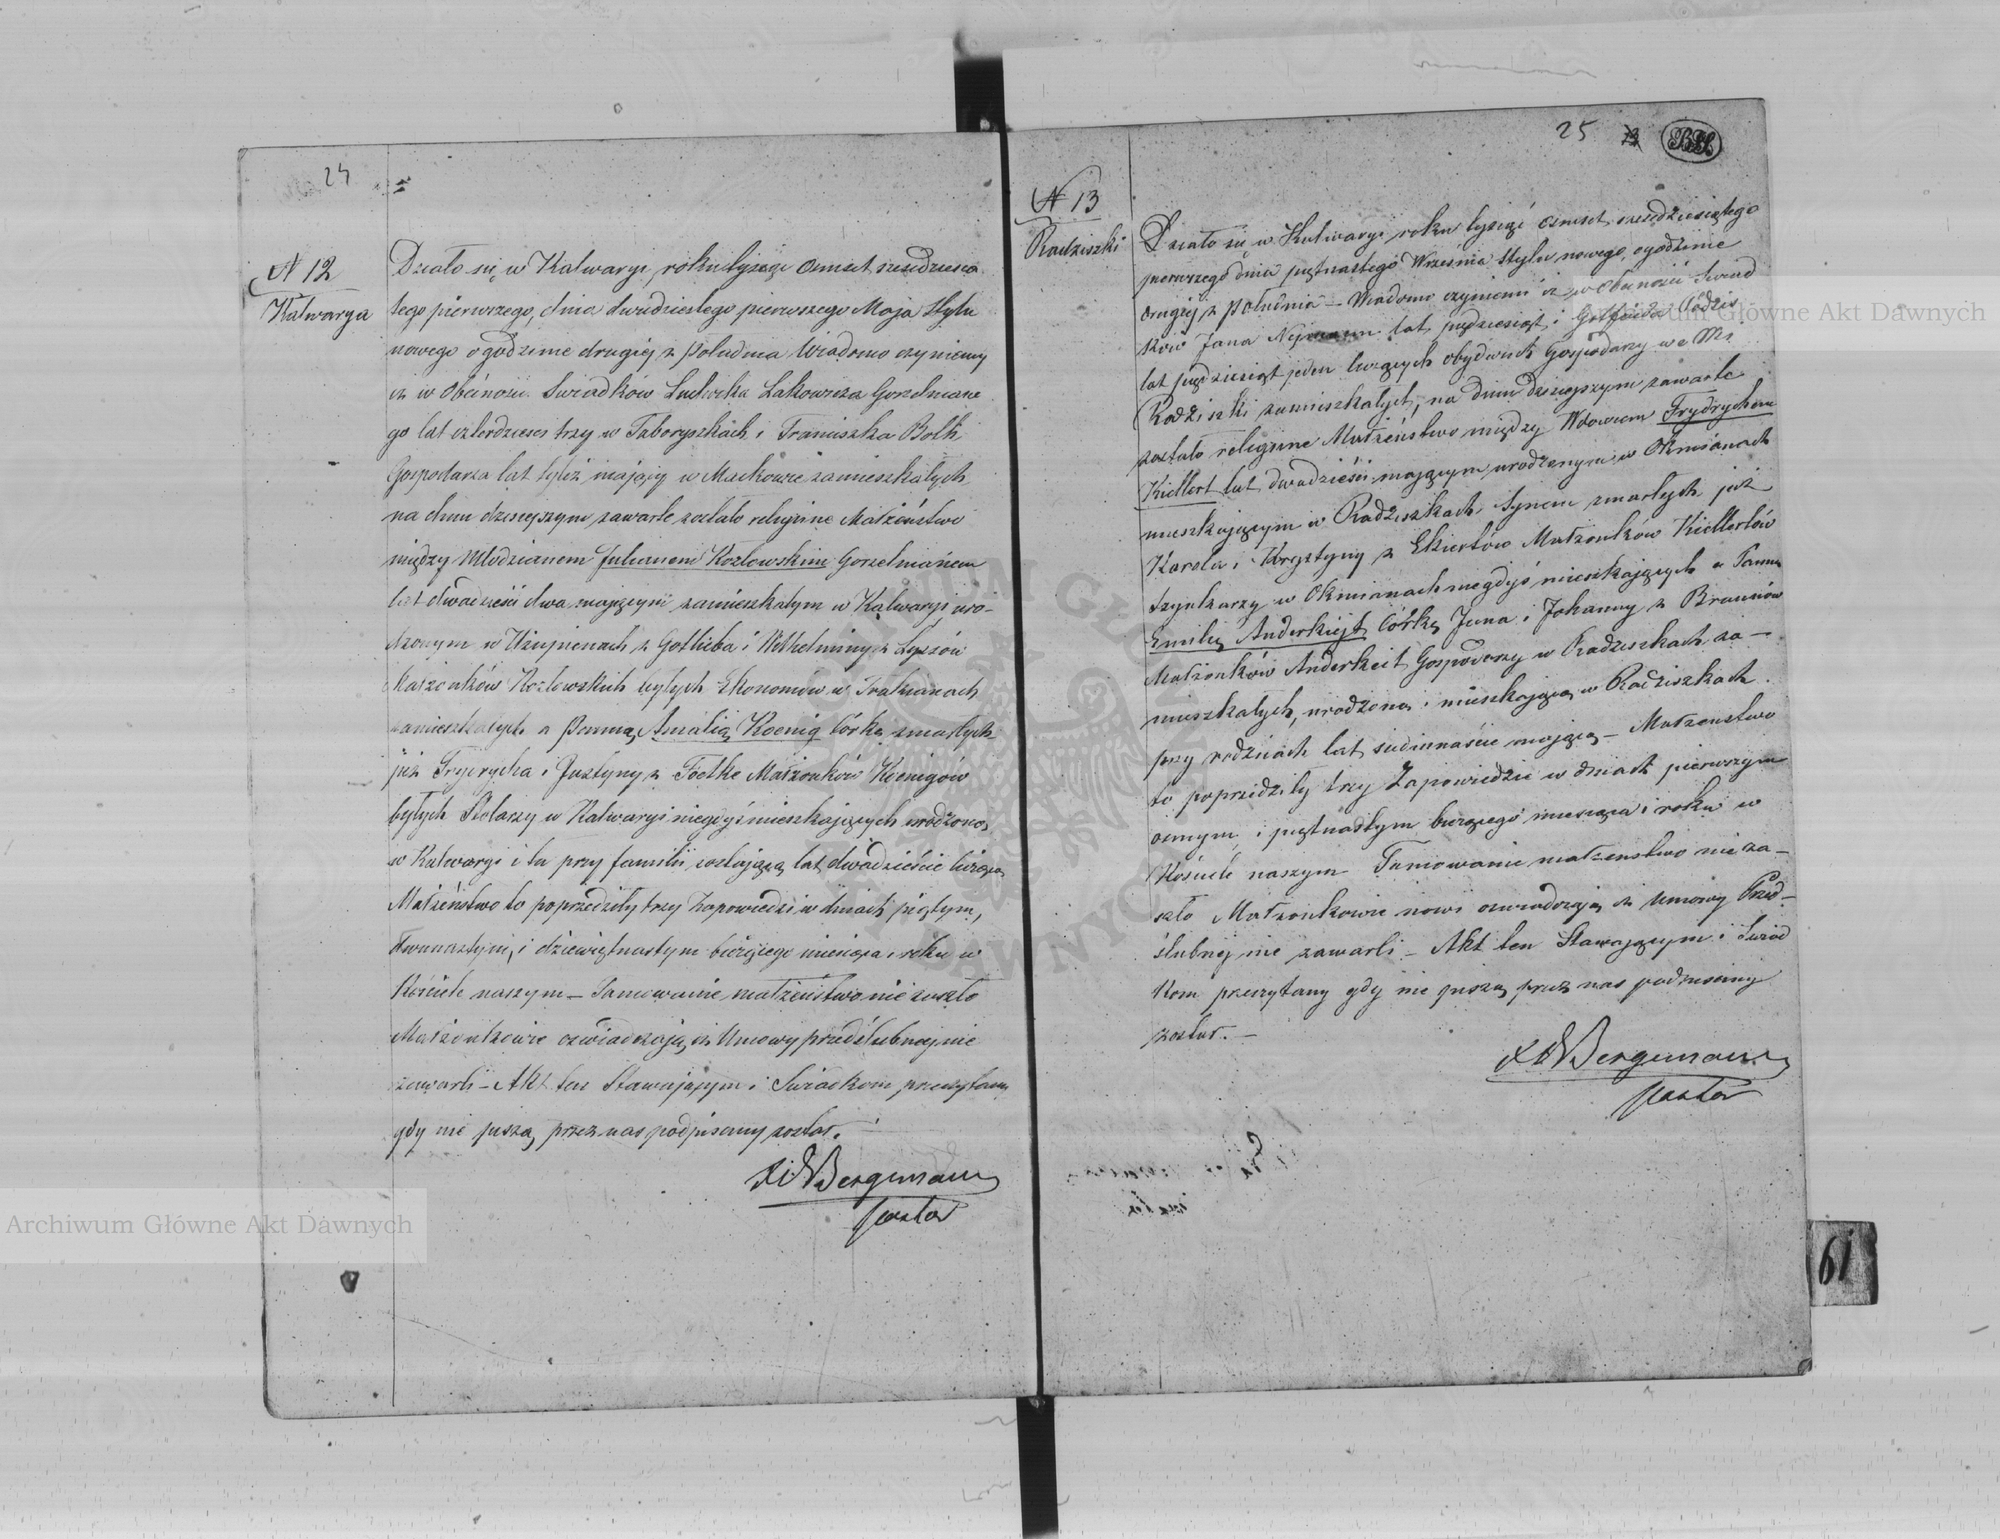 24
N 12
Kalwarya
Działo się w Kalwaryi, roku tysiąc osmset szescdziesią
tego pierwszego, dnia dwudziestego pierwszego Maja Stylu
nowego o godzinie drugiej z południa Wiadomo czyniemy
iż w obecności Swiadków Ludwika Lakowicza Gorzelniane
go lat czterdzieści trzy w Taboryszkach i Franciszka Bolk
Gospodarza lat tyleż mający w Mackowie zamieszkałych
na dniu dzisiejszym zawarte zostało religijne Małżeństwo
między Młodzianem Julianem Kozłowskim Gorzelnianem
lat dwadzieścia dwa mającym zamieszkałym w Kalwaryi, uro-
dzonym w Użupienach z Gotlieba i Wilhelminy z Lyszów
Małżonków Kozłowskich byłych Ekonomów w Trakianach
zamieszkałych a Panną Amalią Koenig Córką zmarłych
już Frydrycha i Justyny z Foelke Małżonków Koenigów
byłych Stolarzy w Kalwaryi niegdyś mieszkających urodzoną
w Kalwaryi i tu przy familii zostającą lat dwadzieście liczącą
Małżeństwo to poprzedziły trzy Zapowiedzi w dniach piątym,
dwunastym, i dziewiętnastym bieżącego miesiąca i roku w
Kościele naszym – Tamowanie małżeństwa nie zaszło
Małżonkowie oswiadczają, iż Umowy przedślubnej nie
zawarli – Akt ten Stawającym i Swiadkom przeczytany
gdy nie piszą przez nas podpisany został.
Bergemann
Pastor
25
N 13
Radziszki
Działo się w Kalwaryi roku tysiąc osmset szescdziesiątego
pierwszego dnia piętnastego Września Stylu nowego, o godzinie
drugiej z południa – Wiadomo czyniemy iż w obecności Swiad
ków Jana Nejmann lat pięćdziesiąt i Gotfrida
lat pięćdziesiąt jeden liczących obydwuch Gospodarzy we Wsi
Radziszki zamieszkałych, na dniu dzisiejszym zawarte
zostało religijne Małżeństwo między Wdowcem Frydrychem
Kiellert lat dwadzieścia mającym urodzonym w Okmianach
mieszkającym w Radziszkach Synem zmarłych już
Karola i Krystyny z Ekiertów Małżonków Kiellertów
Szynkarzy w Okmianach niegdyś mieszkających a Panną
Emilią Anderkiejt Córką Jana i Johanny z Braunów
Małżonków Anderkeit Gospodarzy w Radziszkach za-
mieszkałych, urodzoną i mieszkającą w Radziszkach
przy rodzicach lat siedmnaście mającą – Małżeństwo
to poprzedziły trzy Zapowiedzie w dniach pierwszym
osmym i piętnastym bieżącego miesiąca i roku w
Kościele naszym Tamowanie małżeństwa nie za-
szło Małżonkowie nowi oswiadczają iż Umowy Przed-
ślubnej nie zawarli – Akt ten Stawającym i Swiad
kom przeczytany gdy nie piszą przez nas podpisany
został. –
Bergemann
Pastor
61
Archiwum Główne Akt Dawnych
Archiwum Główne Akt Dawnych